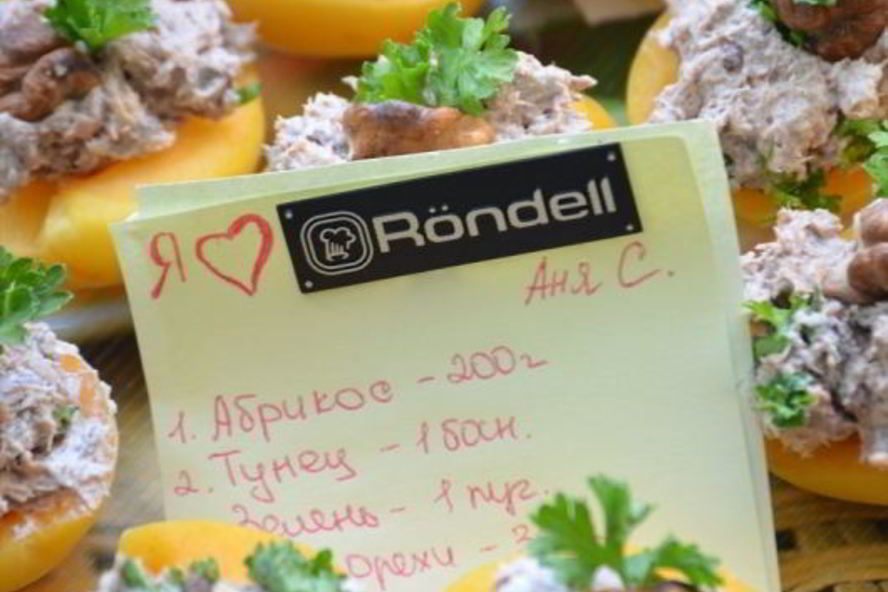 Я ♡ Röndell
Аня С.
1. Абрикос - 200г
2. Тунец - 1 бан.
Зелень - 1 пуг.
орехи -